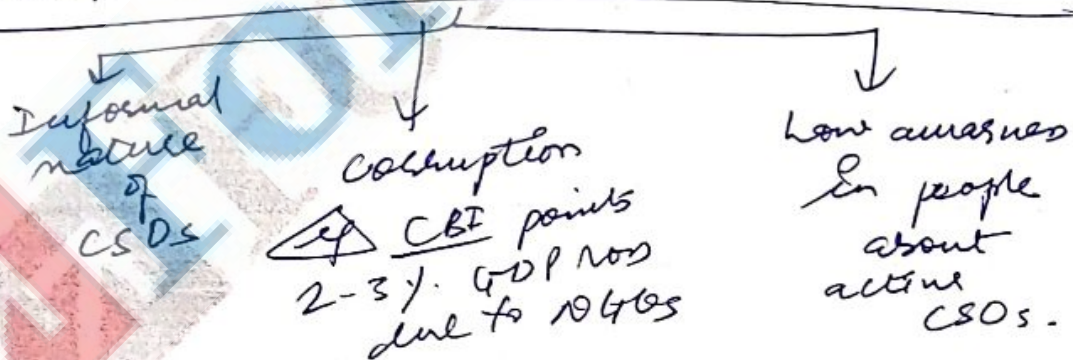 Informal
nature
of
CSOs
Corruption
eg CBI points
2-3%. GDP loss
due to NGOs
Low awarnes
in people
about
active
CSOs.